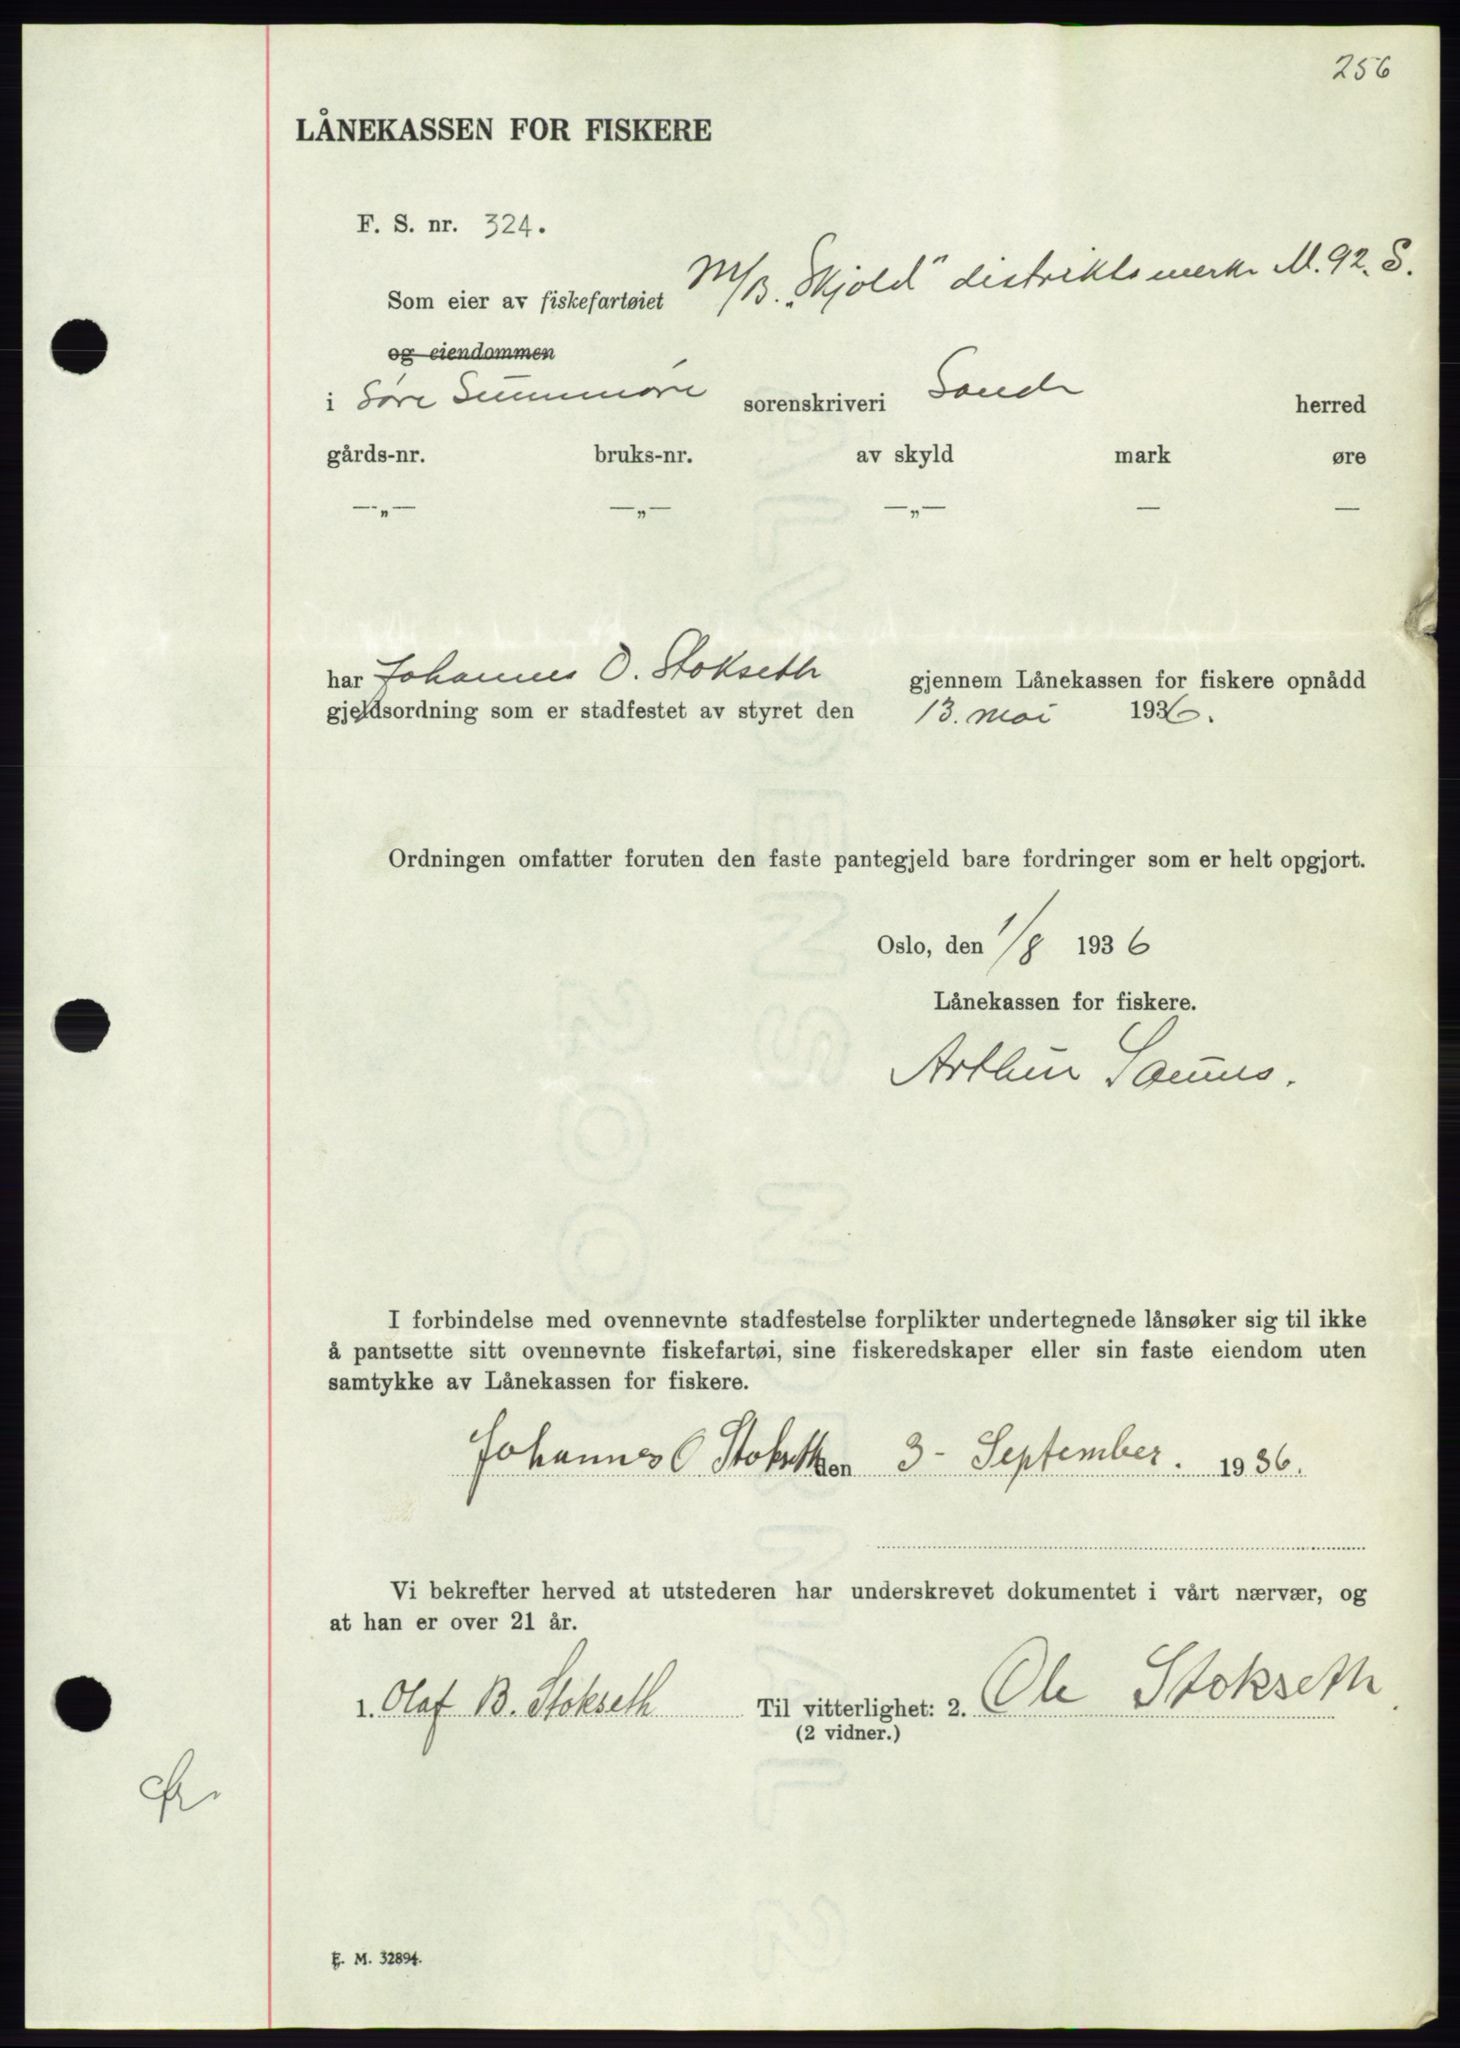 256
LÅNEKASSEN FOR FISKERE
F. S. nr. 324.
Som eier av fiskefartøiet M/B. „Skjold" distriktsmerke M. 92. S.
og eiendommen
i Søre Sunnmøre sorenskriveri Sande herred
gårds-nr. bruks-nr. av skyld mark øre
—„— —„— —„— — —
har Johannes O. Stokseth gjennem Lånekassen for fiskere opnådd
gjeldsordning som er stadfestet av styret den 13. mai 1936.
Ordningen omfatter foruten den faste pantegjeld bare fordringer som er helt opgjort.
Oslo, den 1/8 1936
Lånekassen for fiskere.
Arthur
I forbindelse med ovennevnte stadfestelse forplikter undertegnede lånsøker sig til ikke
å pantsette sitt ovennevnte fiskefartøi, sine fiskeredskaper eller sin faste eiendom uten
samtykke av Lånekassen for fiskere.
Johannes O Stokseth den 3 - September. 1936.
Vi bekrefter herved at utstederen har underskrevet dokumentet i vårt nærvær, og
at han er over 21 år.
1. Olaf B. Stokseth Til vitterlighet: 2. Ole Stokseth
(2 vidner.)
E. M. 32894.